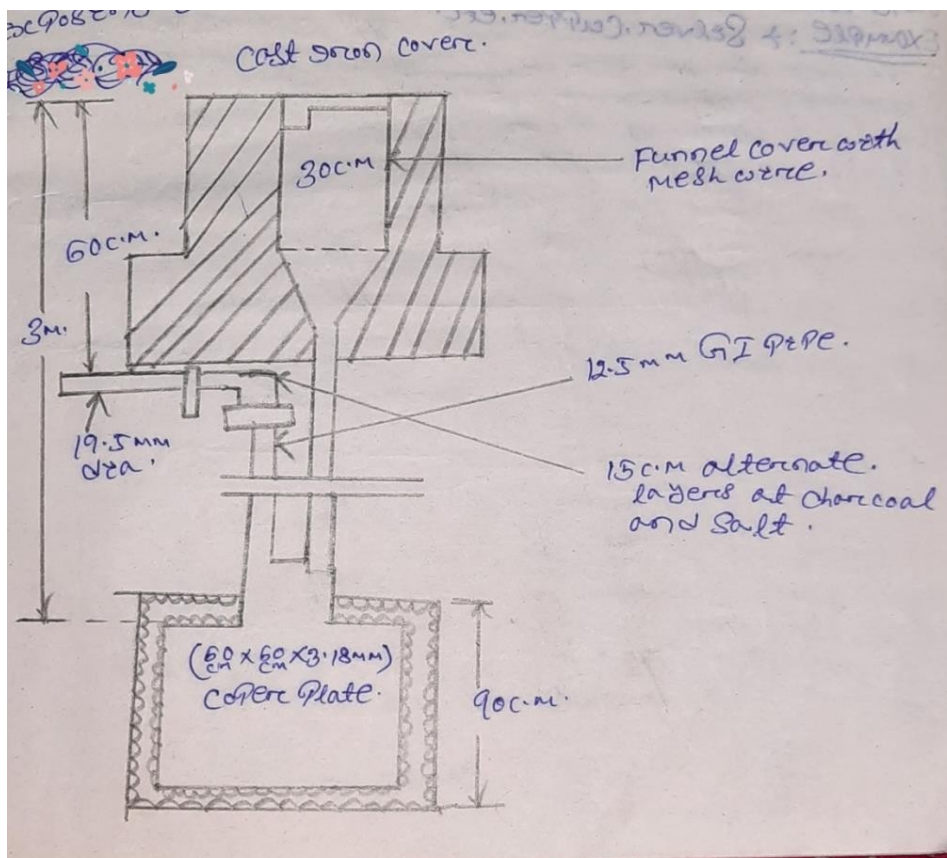 Cast iron cover.
30 C.M
Funnel cover with
mesh wire.
60 C.M.
3M.
12.5 mm GI PIPE.
19.5 MM
dia.
15 C.M alternate.
layers at charcoal
and salt.
(60 cm × 60 cm × 3.18 MM)
Coper Plate.
90 C.M.